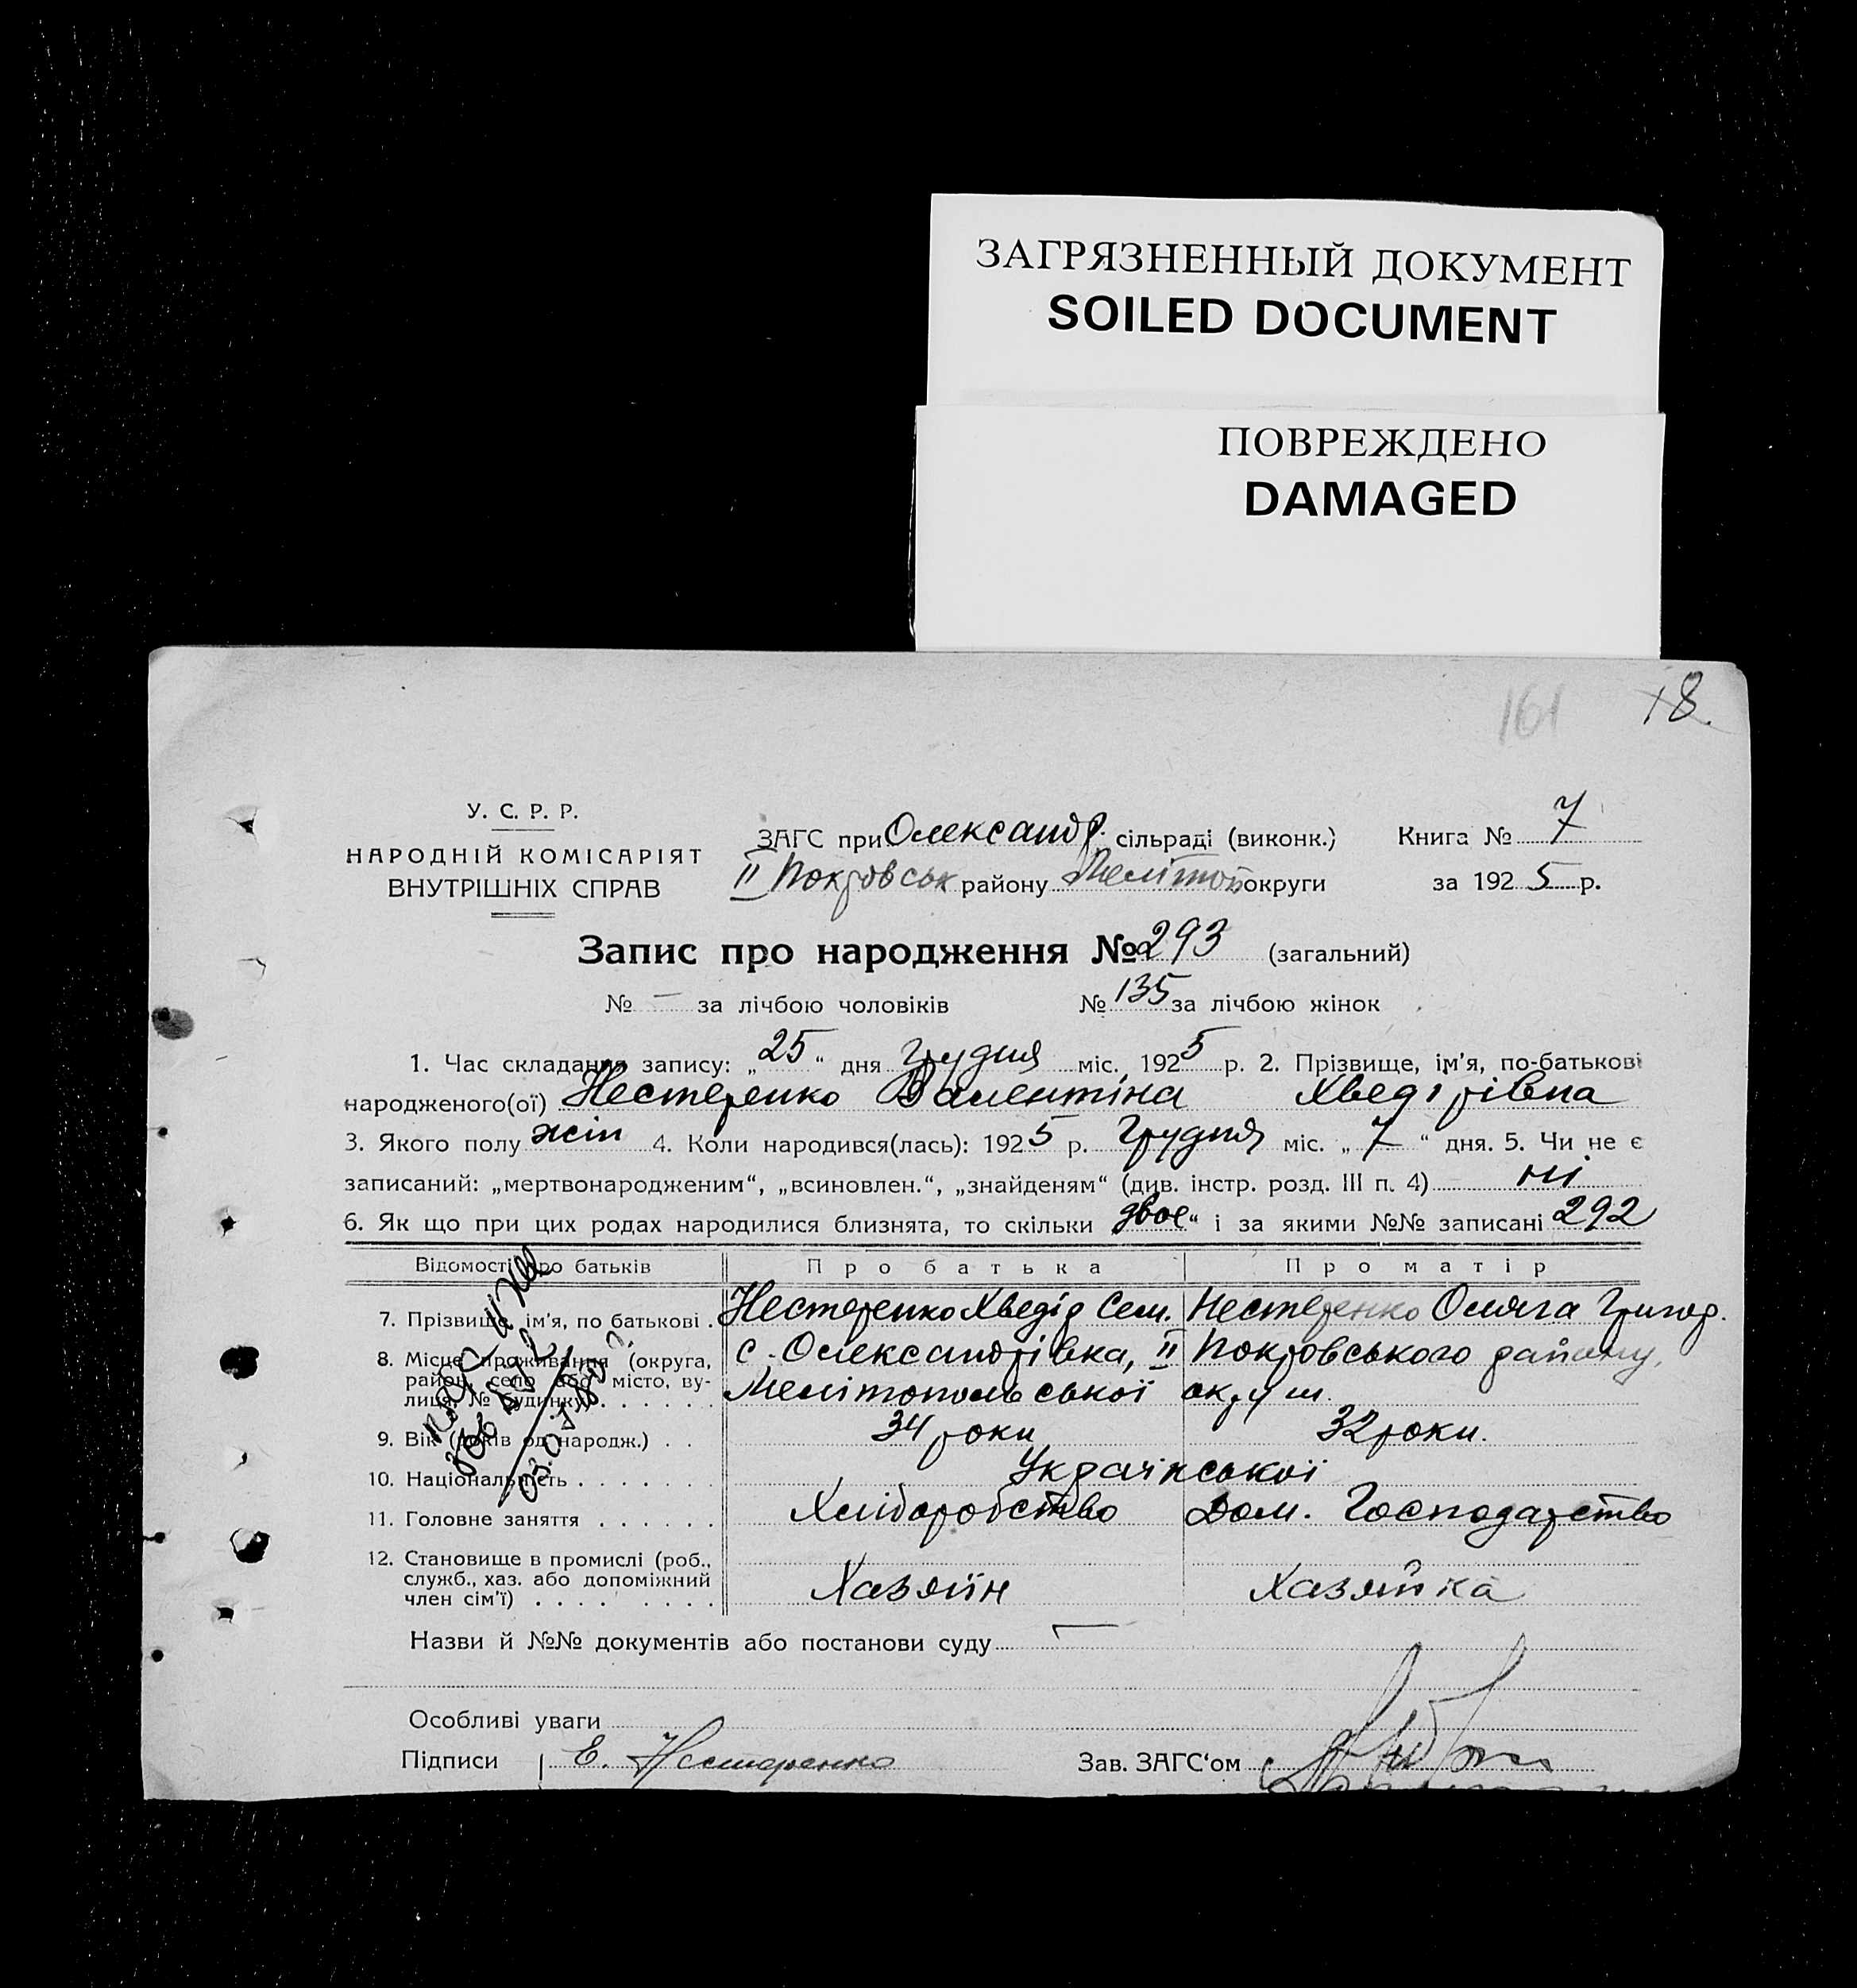 ЗАГРЯЗНЕННЫЙ ДОКУМЕНТ
SOILED DOCUMENT
ПОВРЕЖДЕНО
DAMAGED
161 18.
У. С. Р. Р.
НАРОДНІЙ КОМІСАРІЯТ
ВНУТРІШНІХ СПРАВ
ЗАГС при Олександр. сільраді (виконк.)
II Покровськ району Мелітоп округи
Книга № 7
за 1925 р.
Запис про народження № 293 (загальний)
№ — за лічбою чоловіків № 135 за лічбою жінок
1. Час складання запису: „25“ дня Грудня міс. 1925 р. 2. Прізвище, ім'я, по-батькові
народженого(ої) Нестеренко Валентіна Хведірівна
3. Якого полу жін 4. Коли народився(лась): 1925 р. Грудня міс. „7“ дня. 5. Чи не є
записаний: „мертвонародженим“, „всиновлен.“, „знайденям“ (див. інстр. розд. III п. 4) ні
6. Як що при цих родах народилися близнята, то скільки двоє“ і за якими №№ записані 292
Відомості про батьків Про батька Про матір
7. Прізвище, ім'я, по батькові . Нестеренко Хведір Сем. Нестеренко Ольга Григор.
8. Місце проживання (округа, район, село або місто, вулиця, № будинку) . . . . . . с. Олександрівка, II Покровського району,
Мелітопольської округи.
9. Вік (років од народж.) . . 34 роки 32 роки.
10. Національність . . . . . . . Української
11. Головне заняття . . . . . . Хліборобство Дом. Господарство
12. Становище в промислі (роб., служб., хаз. або допоміжний член сім'ї) . . . . . . . . Хазяїн Хазяйка
Назви й №№ документів або постанови суду —
Особливі уваги
Підписи Е. Нестеренко Зав. ЗАГС'ом